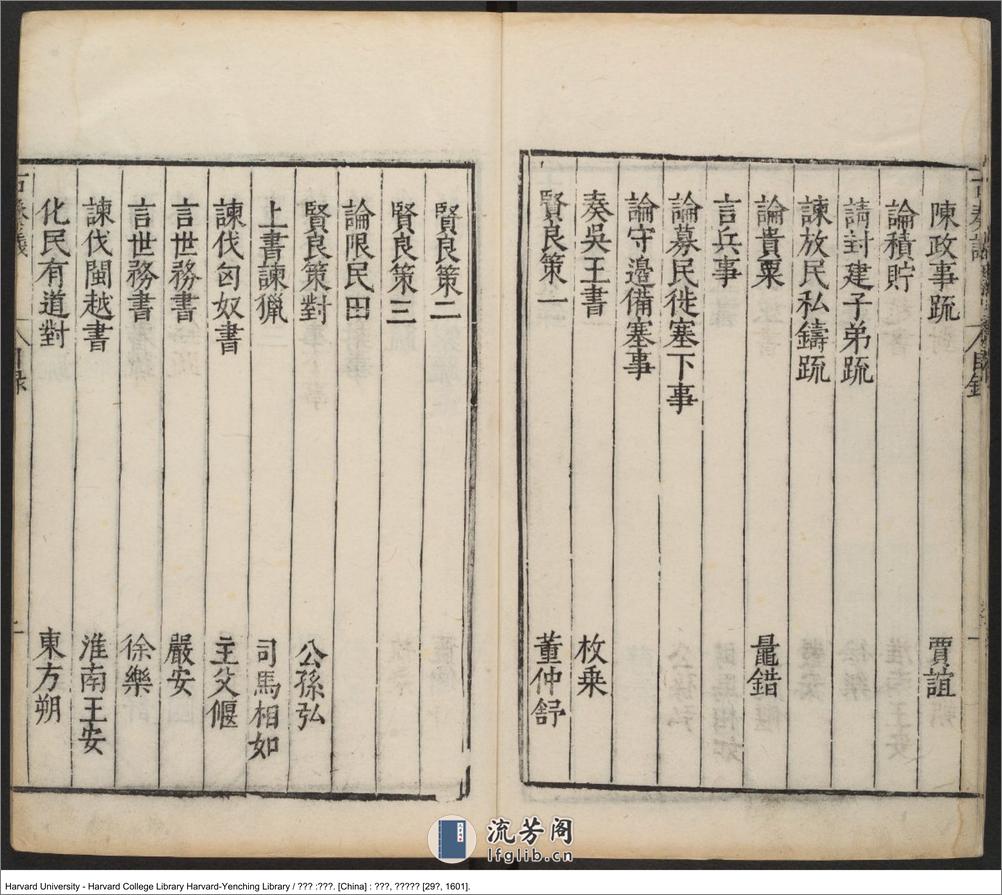 陳政事疏 賈誼
論積貯
請封建子弟疏
諫放民私鑄疏
論貴粟 鼂錯
言兵事
論募民徙塞下事
論守邊備塞事
奏吳王書 枚乗
賢良策一 董仲舒
賢良策二
賢良策三
論限民田
賢良策對 公孫弘
上書諫獵 司馬相如
諫伐匈奴書 主父偃
言世務書 嚴安
言世務書 徐樂
諫伐閩越書 淮南王安
化民有道對 東方朔
流芳阁
lfglib.cn
Harvard University - Harvard College Library Harvard-Yenching Library / ??? :???. [China] : ???, ????? [29?, 1601].